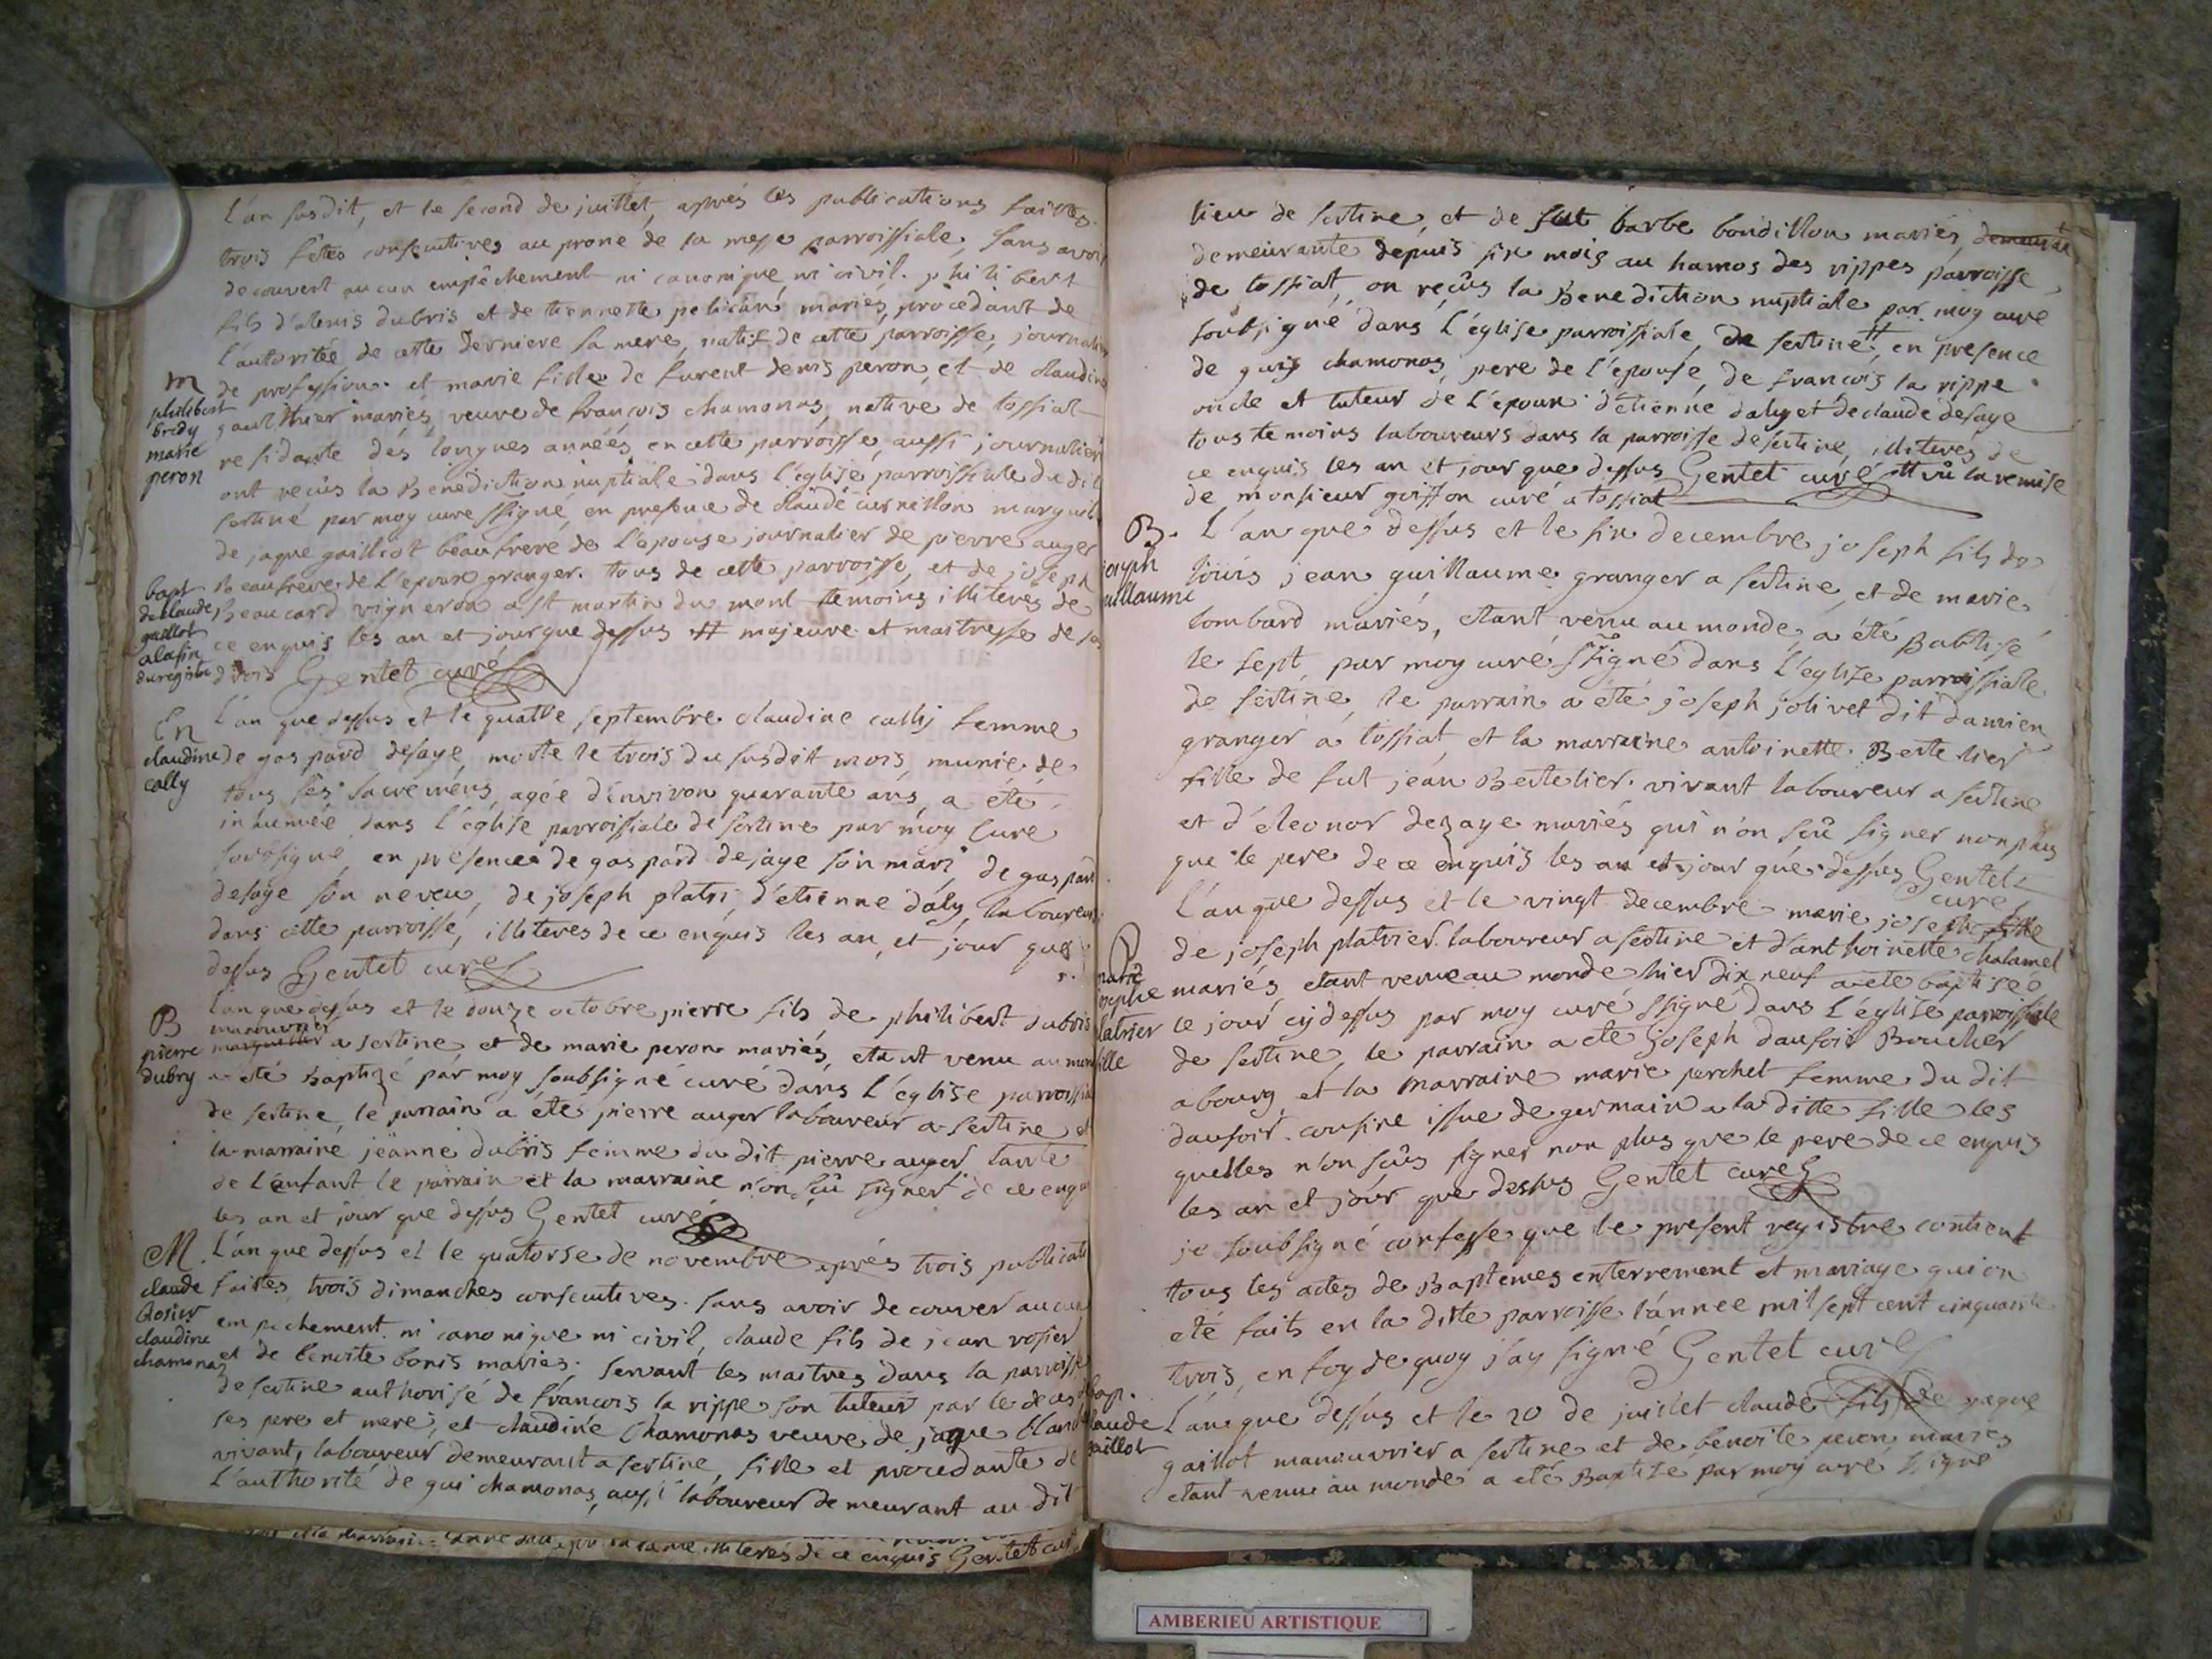 L'an susdit, et le second de juillet, aprés les publications faittes
trois fêtes consecutives au prone de la messe parroissiale, sans avoir
decouvert aucun empêchement ni canonique, ni civil. philibert
fils d'alexis dubris et de tiennette pelicané mariés, procedant de
l'autoritée de cette derniere sa mere, natif de cette parroisse, journalier
m
philibert
bridy
marie
peron
de profession. et marie fille de furent denis peron, et de claudine
gaulthier mariés, veuve de françois chamonas, native de tossiat
residante dés longues années en cette parroisse, aussi journalier
ont reçûs la Benediction nuptiale dans l'église parroissiale du dit
sertiné par moy curé ssigné, en presence de claude curnillon marguil
de jaque gailliot beaufrere de l'epouse journalier de pierre auger
bapt
de claude
gaillot
alafin
du registre
Beaufrere de l'epoux granger. tous de cette parroisse, et de joseph
Beaucard vigneron a st martin du mont temoins illiterés de
ce enquis les an et jour que dessus # majeure et maitresse de ses
drois Gentet curé
En
claudine
cally
L'an que dessus et le quattre septembre claudine callij femme
de gaspard desaye, morte le trois du susdit mois, munie de
tous ses sacremens, agée d'environ quarante ans, a eté
inhumée dans l'église parroissiale de sertine par moy curé
soubsigné, en presence de gaspard desaye son mari, de gaspard
desaye son neveu, de joseph platri, d'etienne daly, laboureurs
dans cette parroisse, illiteres de ce enquis les an, et jour que
dessus Gentet curé
B
pierre
dubry
L'an que dessus et le douze octobre pierre fils de philibert dubris
manouvrier
marguillier a sertine, et de marie peron mariés, etant venu au mon
a eté Baptizé par moy soubsigné curé dans L'église parroissia
de sertine, le parrain a été pierre auger laboureur a sertine et
la marraine jeanne dubris femme du dit pierre auger tante
de l'enfant le parrain et la marraine n'on sçû signer de ce enqu
les an et jour que dessus Gentet curé
M.
claude
Rosier
claudine
chamonas
L'an que dessus et le quatorse de novembre aprés trois publicati
faites, trois dimanches consecutives. sans avoir decouver aucun
empechement ni canonique ni civil, claude fils de jean rosier
et de benoite bonis mariés. servant les maitres dans la parroisse
de sertine authorisé de françois la rippe son tuteur par le deces de
ses pere et mere, et claudine chamonas veuve de jaque blanc
vivant, laboureur demeurant a sertine, fille et procedante de
L'authorité de gui chamonas, aussi laboureur demeurant au dit
illiterés de ce enquis Gentet curé
lieu de sertine, et de fut barbe bondillon mariés, demeurante
demeurante depuis six mois au hamos des rippes parroisse
de tossiat, on reçûs la Benediction nuptiale par moy curé
soubsigné dans l'église parroissiale, de sertine #, en presence
de guy chamonas, pere de l'épouse, de francois la rippe
oncle et tuteur de l'epoux d'etienne daly et de claude desaye
tous temoins laboureurs dans la parroisse de sertine, illiterés de
ce enquis les an et jour que dessus Gentet curé # vû la remise
de monsieur goisson curé a tossiat
B.
joseph
guillaume
L'an que dessus et le six decembre joseph fils de
louis jean guillaume granger a sertine, et de marie
lombard mariés, etant venu au monde, a été Babtisé
le sept, par moy curé ssigné dans l'eglise parroissiale
de sertine, le parrain a été joseph jolivet dit damien
granger a tossiat, et la marraine antoinette Bertelier
fille de fut jean Bertelier. vivant laboureur a sertine
et d'eleonor dezaye mariés qui n'on sçû signer non plus
que le pere de ce enquis les an et jour que dessus Gentet
curé
B
marie
josephe
platrier
fille
L'an que dessus et le vingt decembre marie josephe fille
de joseph platrier laboureur a sertine et d'anthoinette chalamel
mariés etant venue au monde hier dix neuf a eté baptisée
le jour cy dessus par moy curé ssigné dans L'église parroissiale
de sertine, le parrain a eté joseph daufoir Boucher
a bourg, et la marraine marie perchet femme du dit
daufoir. cousine issue de germain a la ditte fille les
quelles n'on sçûs signer non plus que le pere de ce enquis
les an et jour que dessus Gentet curé
je soubsigné confesse que le present registre contient
tous les actes de Baptemes enterrement et mariage qui on
eté faits en la ditte parroisse l'année mil sept cent cinquante
trois, en foy de quoy j'ay signé Gentet curé
Bap.
claude
gaillot
L'an que dessus et le 20 de juillet claude fils de jaque
gaillot manouvrier a sertine et de benoite peron mariés
etant venu au monde a eté Baptizé par moy curé ssigné
AMBERIEU ARTISTIQUE